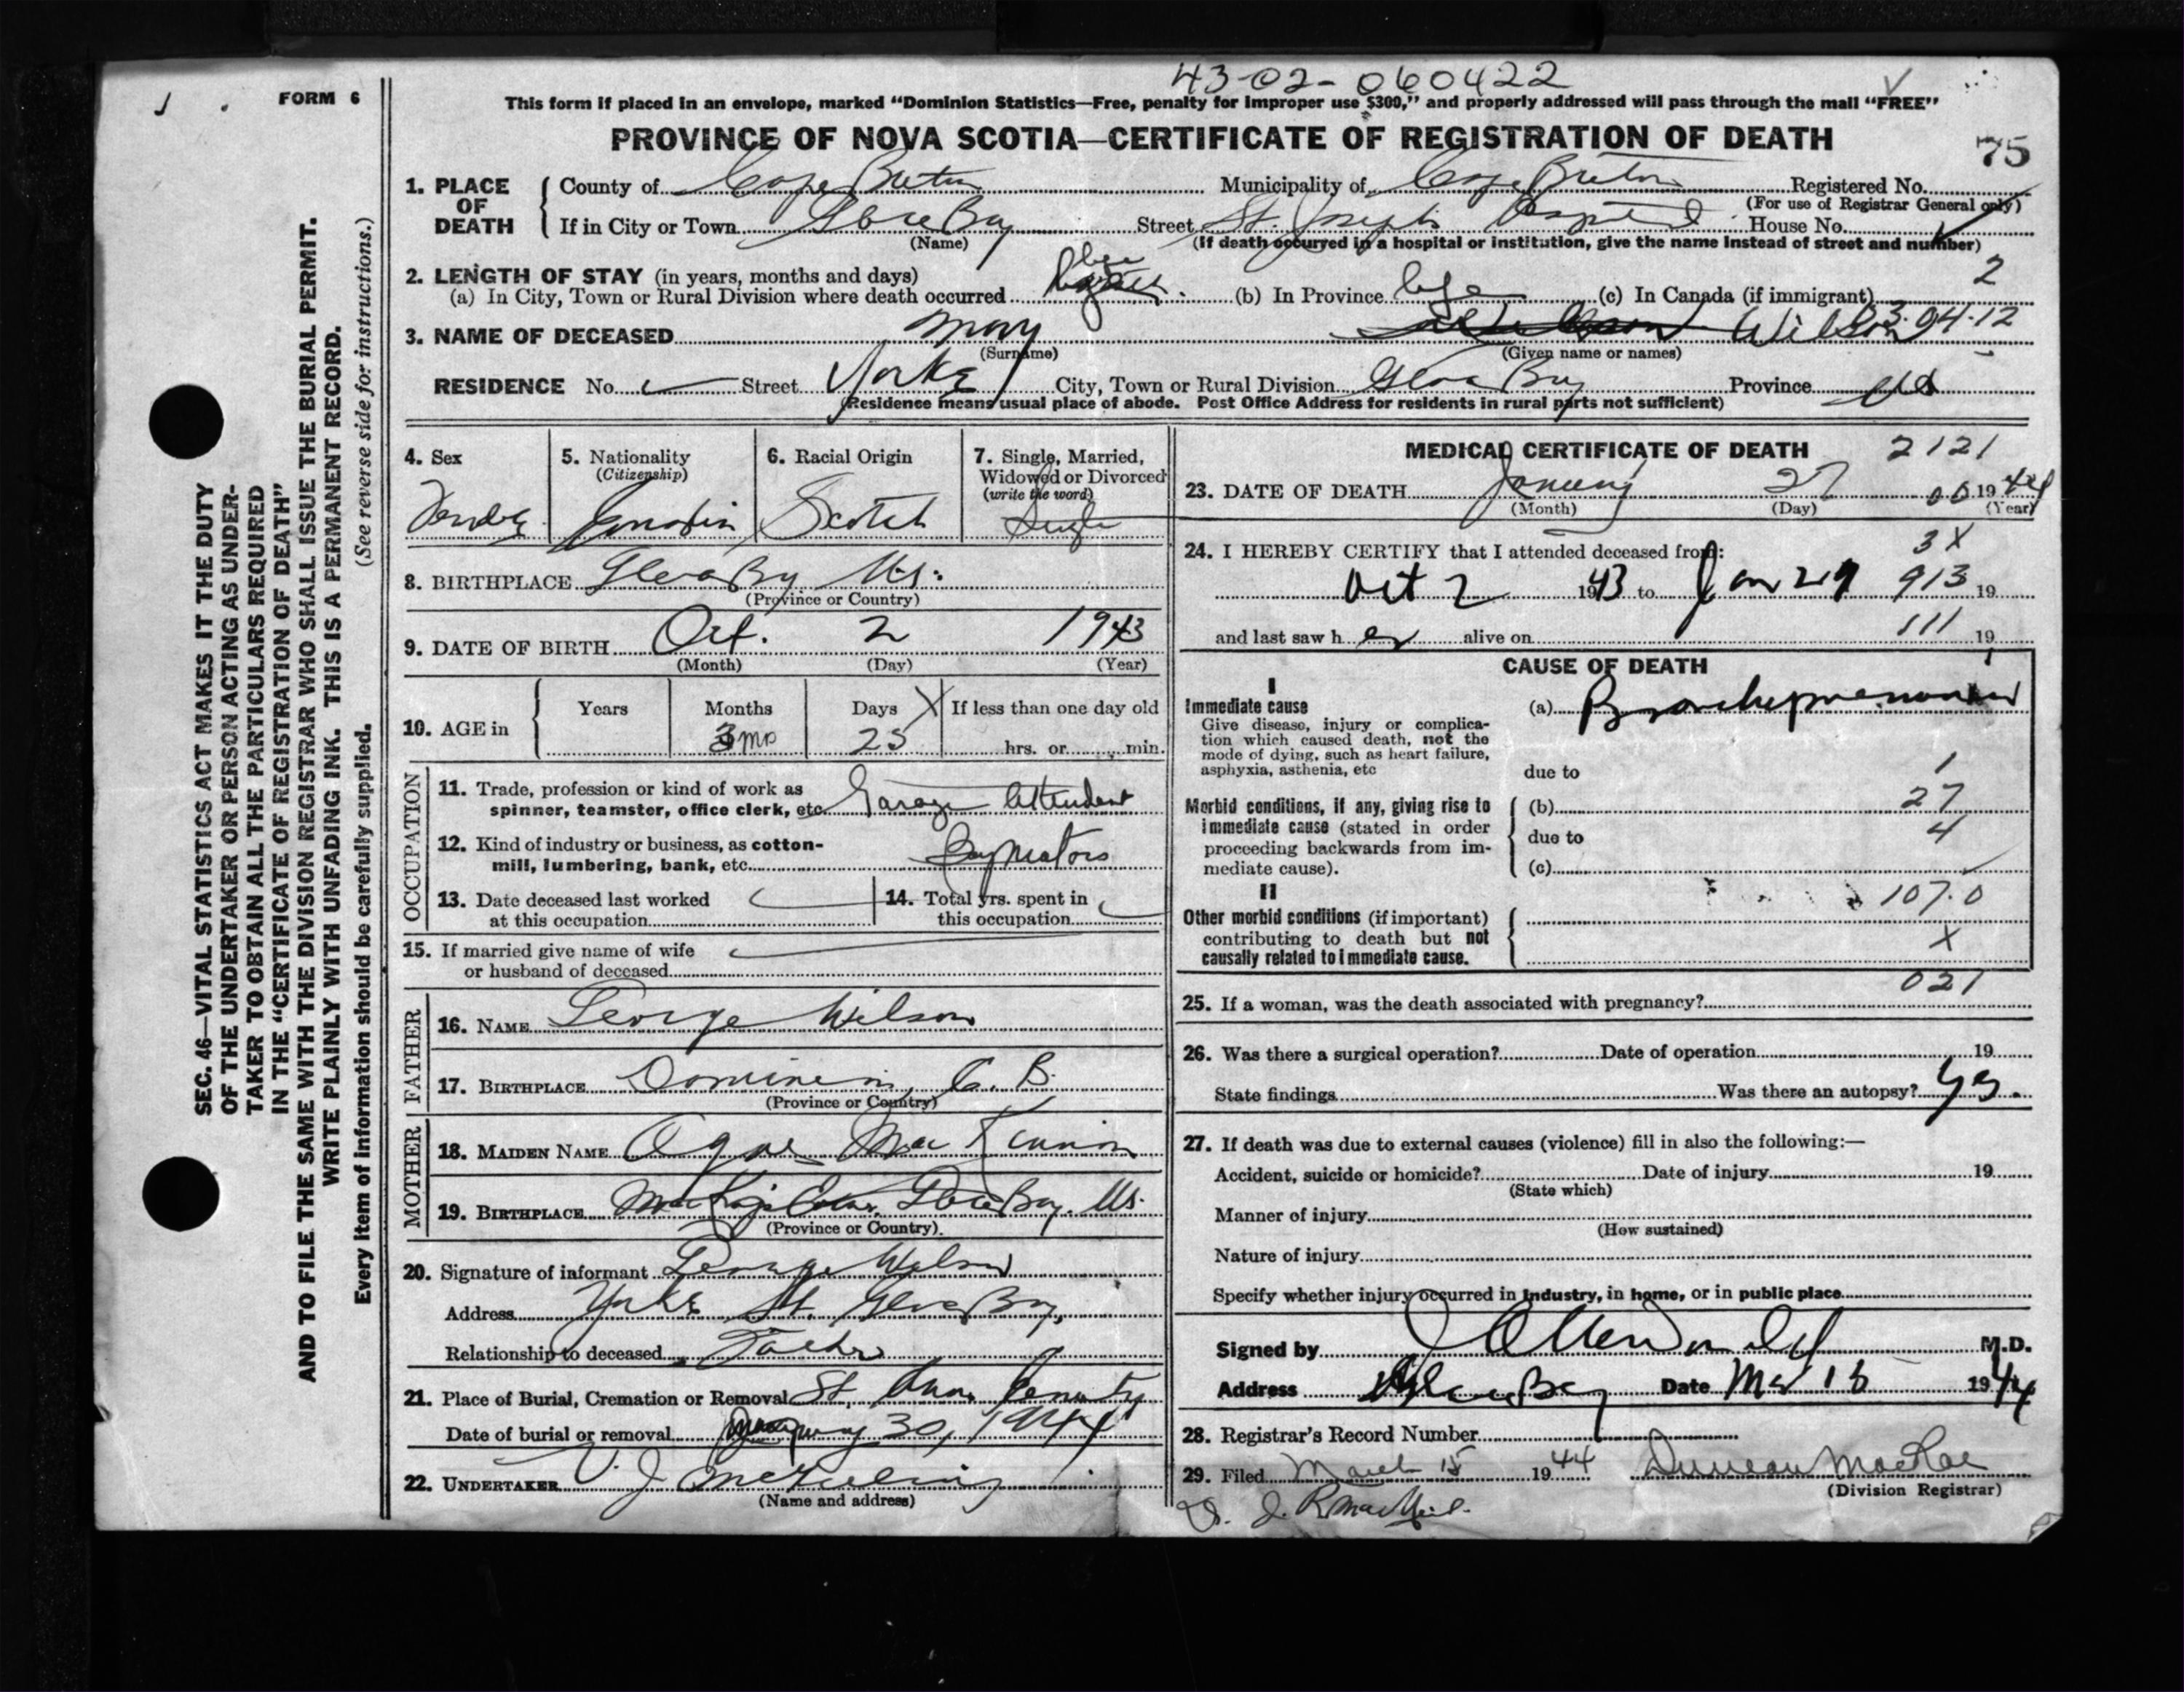 43-02-060422
FORM 6
This form if placed in an envelope, marked “Dominion Statistics—Free, penalty for improper use $300,” and properly addressed will pass through the mail “FREE”
PROVINCE OF NOVA SCOTIA—CERTIFICATE OF REGISTRATION OF DEATH
75
1. PLACE OF DEATH
County of Cape Breton Municipality of Cape Breton Registered No.
(For use of Registrar General only)
If in City or Town Glace Bay Street St. Joseph's Hospital House No.
(Name) (If death occurred in a hospital or institution, give the name instead of street and number)
2. LENGTH OF STAY (in years, months and days) 2
(a) In City, Town or Rural Division where death occurred life (b) In Province life (c) In Canada (if immigrant)
3. NAME OF DECEASED Mary Wilson 04-12
(Surname) (Given name or names)
RESIDENCE No. Street York City, Town or Rural Division Glace Bay Province NS
(Residence means usual place of abode. Post Office Address for residents in rural parts not sufficient)
SEC. 46—VITAL STATISTICS ACT MAKES IT THE DUTY
OF THE UNDERTAKER OR PERSON ACTING AS UNDER-
TAKER TO OBTAIN ALL THE PARTICULARS REQUIRED
IN THE “CERTIFICATE OF REGISTRATION OF DEATH”
AND TO FILE THE SAME WITH THE DIVISION REGISTRAR WHO SHALL ISSUE THE BURIAL PERMIT.
WRITE PLAINLY WITH UNFADING INK. THIS IS A PERMANENT RECORD.
Every item of information should be carefully supplied. (See reverse side for instructions.)
4. Sex Female
5. Nationality (Citizenship) Canadian
6. Racial Origin Scotch
7. Single, Married, Widowed or Divorced (write the word) Single
8. BIRTHPLACE Glace Bay N.S.
(Province or Country)
9. DATE OF BIRTH Oct. 2 1943
(Month) (Day) (Year)
10. AGE in Years Months Days X If less than one day old
3 mo 25 hrs. or min.
OCCUPATION
11. Trade, profession or kind of work as
spinner, teamster, office clerk, etc. Garage Attendent
12. Kind of industry or business, as cotton-
mill, lumbering, bank, etc. Bay Motors
13. Date deceased last worked
at this occupation
14. Total yrs. spent in
this occupation
15. If married give name of wife
or husband of deceased
FATHER
16. NAME George Wilson
17. BIRTHPLACE Dominion, C. B.
(Province or Country)
MOTHER
18. MAIDEN NAME Agnes MacKinnon
19. BIRTHPLACE Glace Bay. N.S.
(Province or Country)
20. Signature of informant George Wilson
Address York St. Glace Bay.
Relationship to deceased Father
21. Place of Burial, Cremation or Removal St. Anns Cemetery
Date of burial or removal January 30, 1944
22. UNDERTAKER V. J.
(Name and address)
MEDICAL CERTIFICATE OF DEATH 2121
23. DATE OF DEATH January 27 00 1944
(Month) (Day) (Year)
24. I HEREBY CERTIFY that I attended deceased from: 3X
Oct 2 1943 to Jan 27 913 19
and last saw her alive on 111 19
CAUSE OF DEATH
I
Immediate cause
Give disease, injury or complica-
tion which caused death, not the
mode of dying, such as heart failure,
asphyxia, asthenia, etc
(a) Bronchopneumonia
due to 1
Morbid conditions, if any, giving rise to
immediate cause (stated in order
proceeding backwards from im-
mediate cause).
(b) 27
due to 4
(c)
II
107.0
Other morbid conditions (if important)
contributing to death but not
causally related to immediate cause.
X
021
25. If a woman, was the death associated with pregnancy?
26. Was there a surgical operation? Date of operation 19
State findings Was there an autopsy? Yes.
27. If death was due to external causes (violence) fill in also the following:—
Accident, suicide or homicide? Date of injury 19
(State which)
Manner of injury
(How sustained)
Nature of injury
Specify whether injury occurred in industry, in home, or in public place
Signed by M.D.
Address Glace Bay Date Mar 15 1944
28. Registrar's Record Number
29. Filed March 15 1944 Duncan MacRae
(Division Registrar)
J. R. MacNeil.